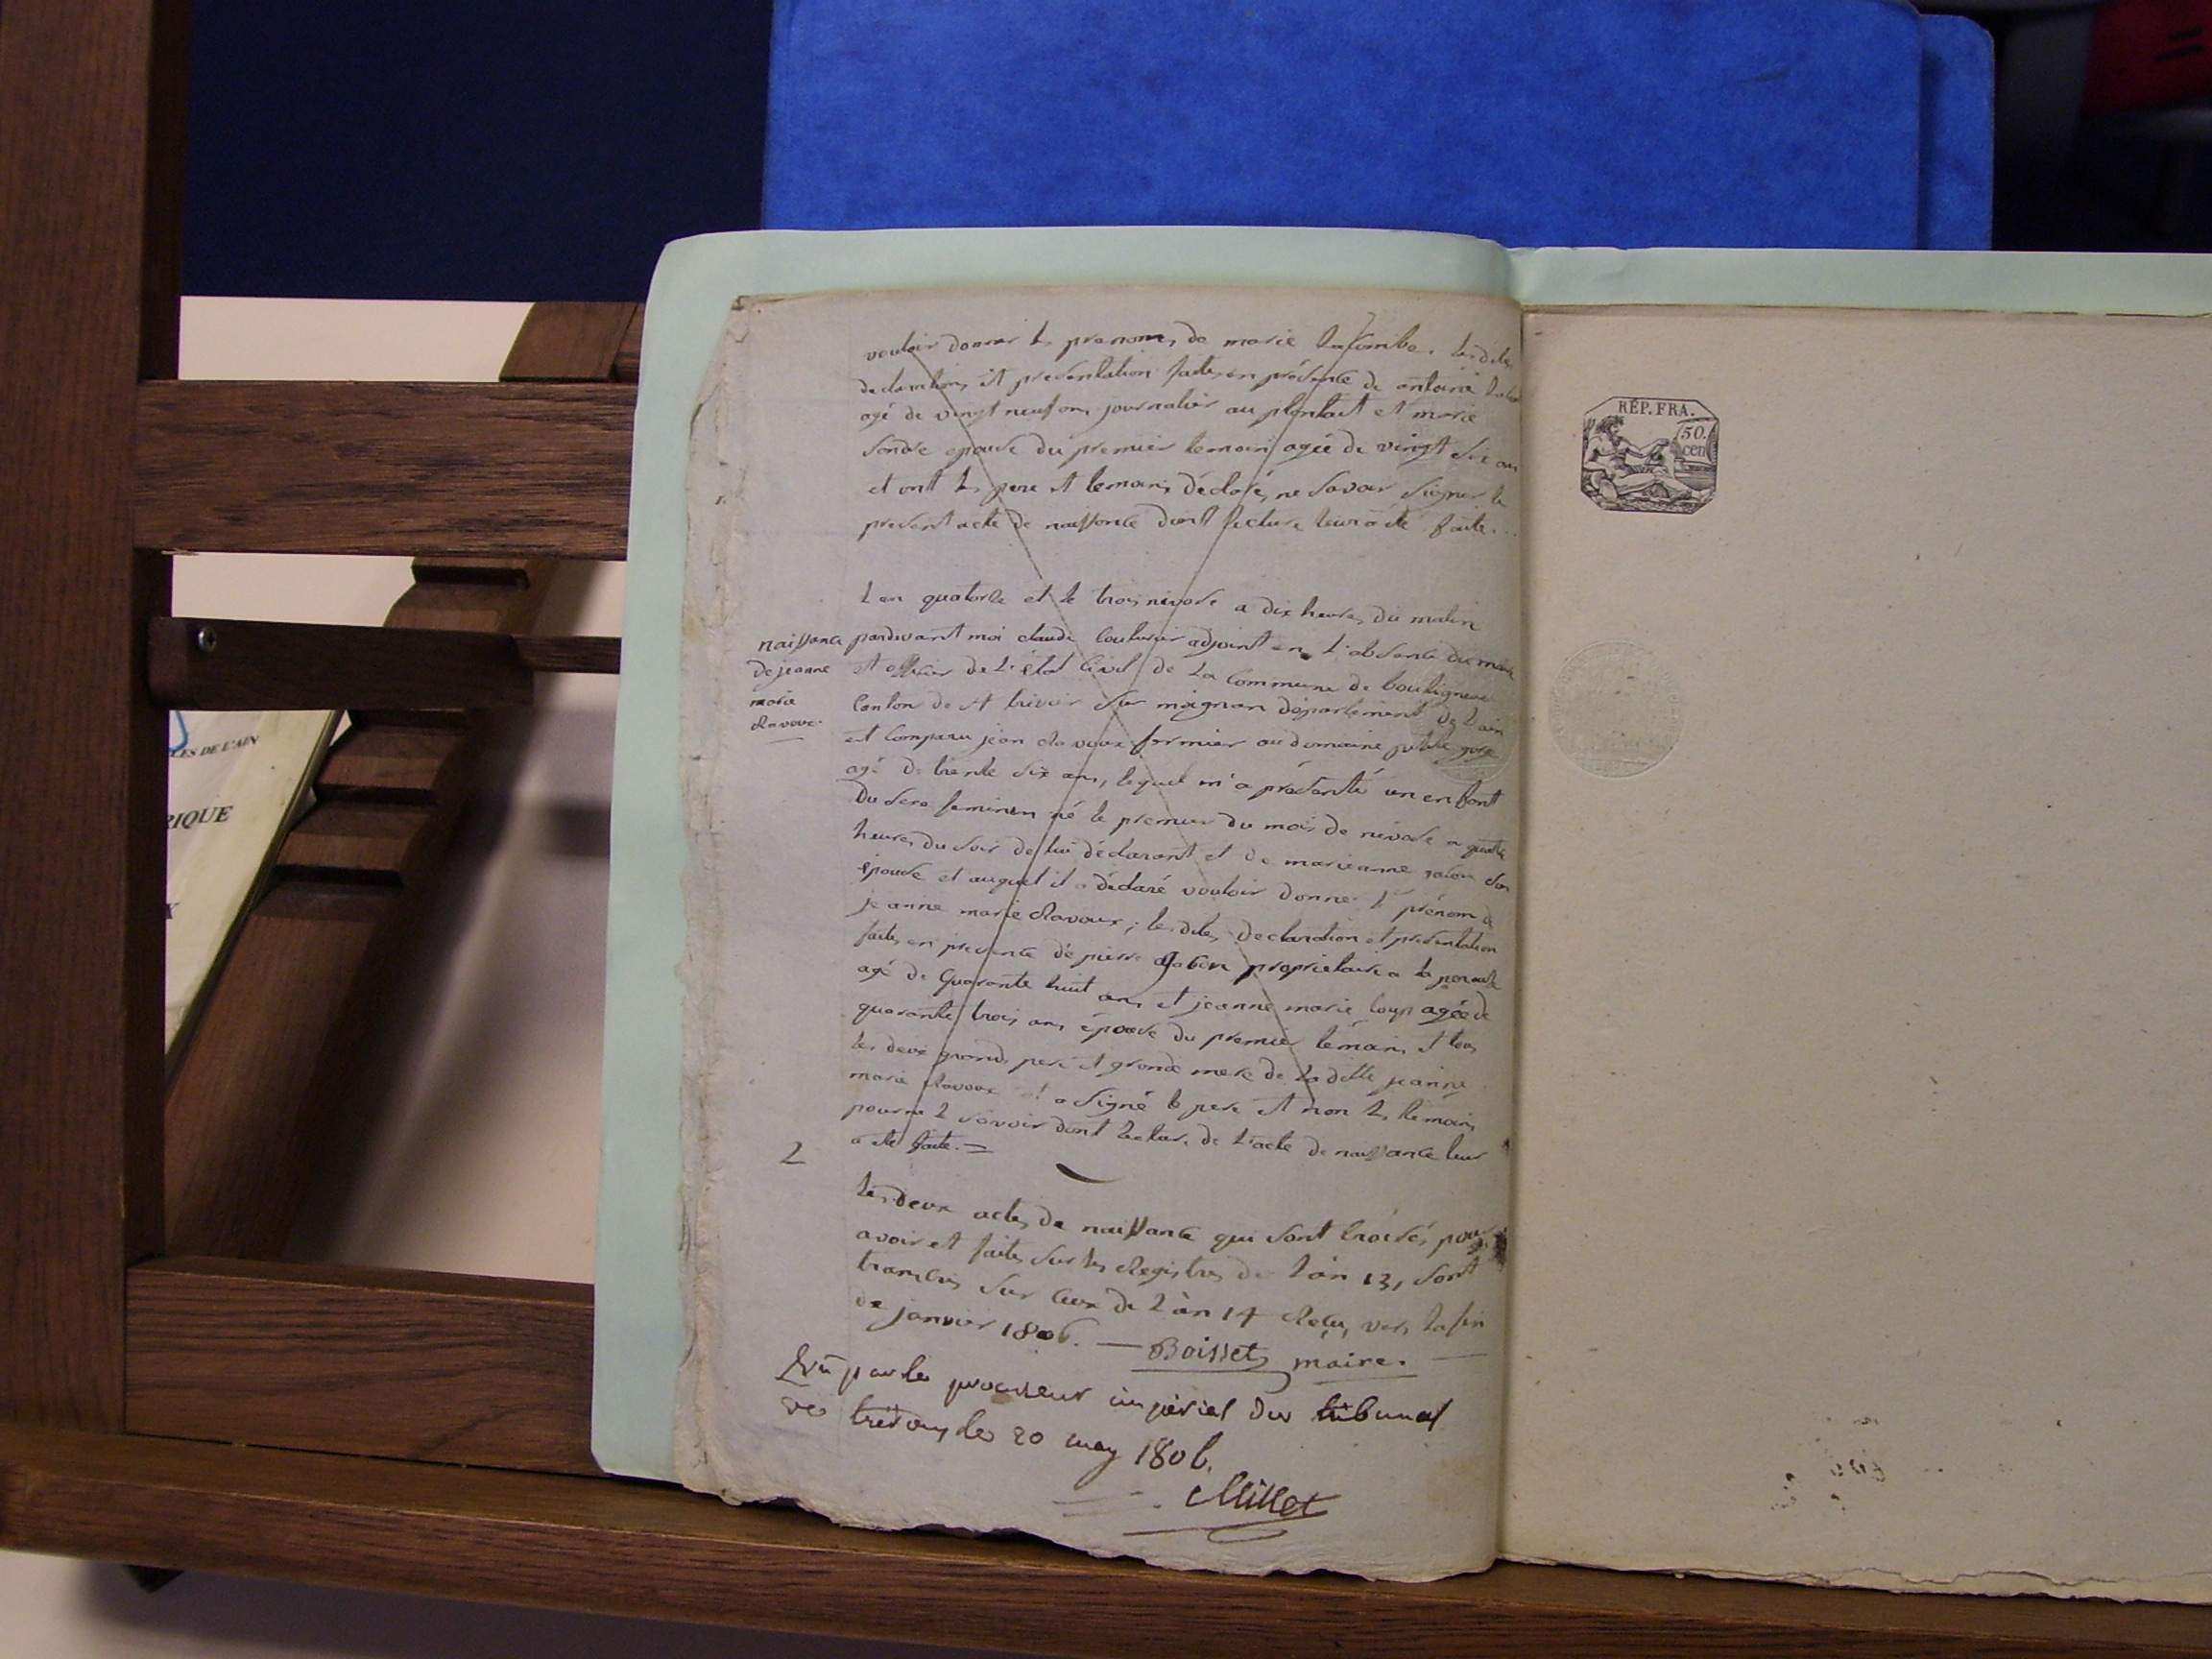 vouloir donner les prenoms de marie lacombe. lesdites
declarations et presentation faites en présence de antoine
agé de vingt neuf ans journalier au plantait et marie
epouse du premier temoin agée de vingt six ans
et ont les pere et temoins déclaré ne savoir signer le
present acte de naissance dont lecture leur a été faite...
L'an quatorze et le trois nivose a dix heures du matin
pardevant moi claude couturier adjoint en l'absence du maire
et officier de l'état civil de la commune de bouligneux
canton de st trivier sur moignan département de l'ain
est comparu jean ravoux fermier au domaine
agé de trente six ans, lequel m'a présenté un enfant
du sexe feminin né le premier du mois de nivose a quatre
heures du soir de lui déclarant et de marieanne son
épouse et auquel il a déclaré vouloir donner le prénom de
jeanne marie Ravoux; lesdites declaration et presentation
faites en presence de pierre propriétaire a la
agé de quarante huit ans et jeanne marie loup agée de
quarante trois ans épouse du premier témoin et tous
les deux grand pere et grande mere de la ditte jeanne
marie Ravoux et a signé le pere et non les temoins
pour ne le savoir dont lecture de l'acte de naissance leur
a été faite. =
naissance
de jeanne
marie
Ravoux.
2
les deux actes de naissance qui sont croisés, pour
avoir été faits sur les Registres de l'an 13, sont
transcris sur ceux de l'an 14 Reçus vers la fin
de janvier 1806. — Boisset maire. —
Vu par le procureur impérial du tribunal
de trévoux le 20 may 1806.
Millet
RÉP. FRA.
50.
cen
LES DE L'AIN
RIQUE